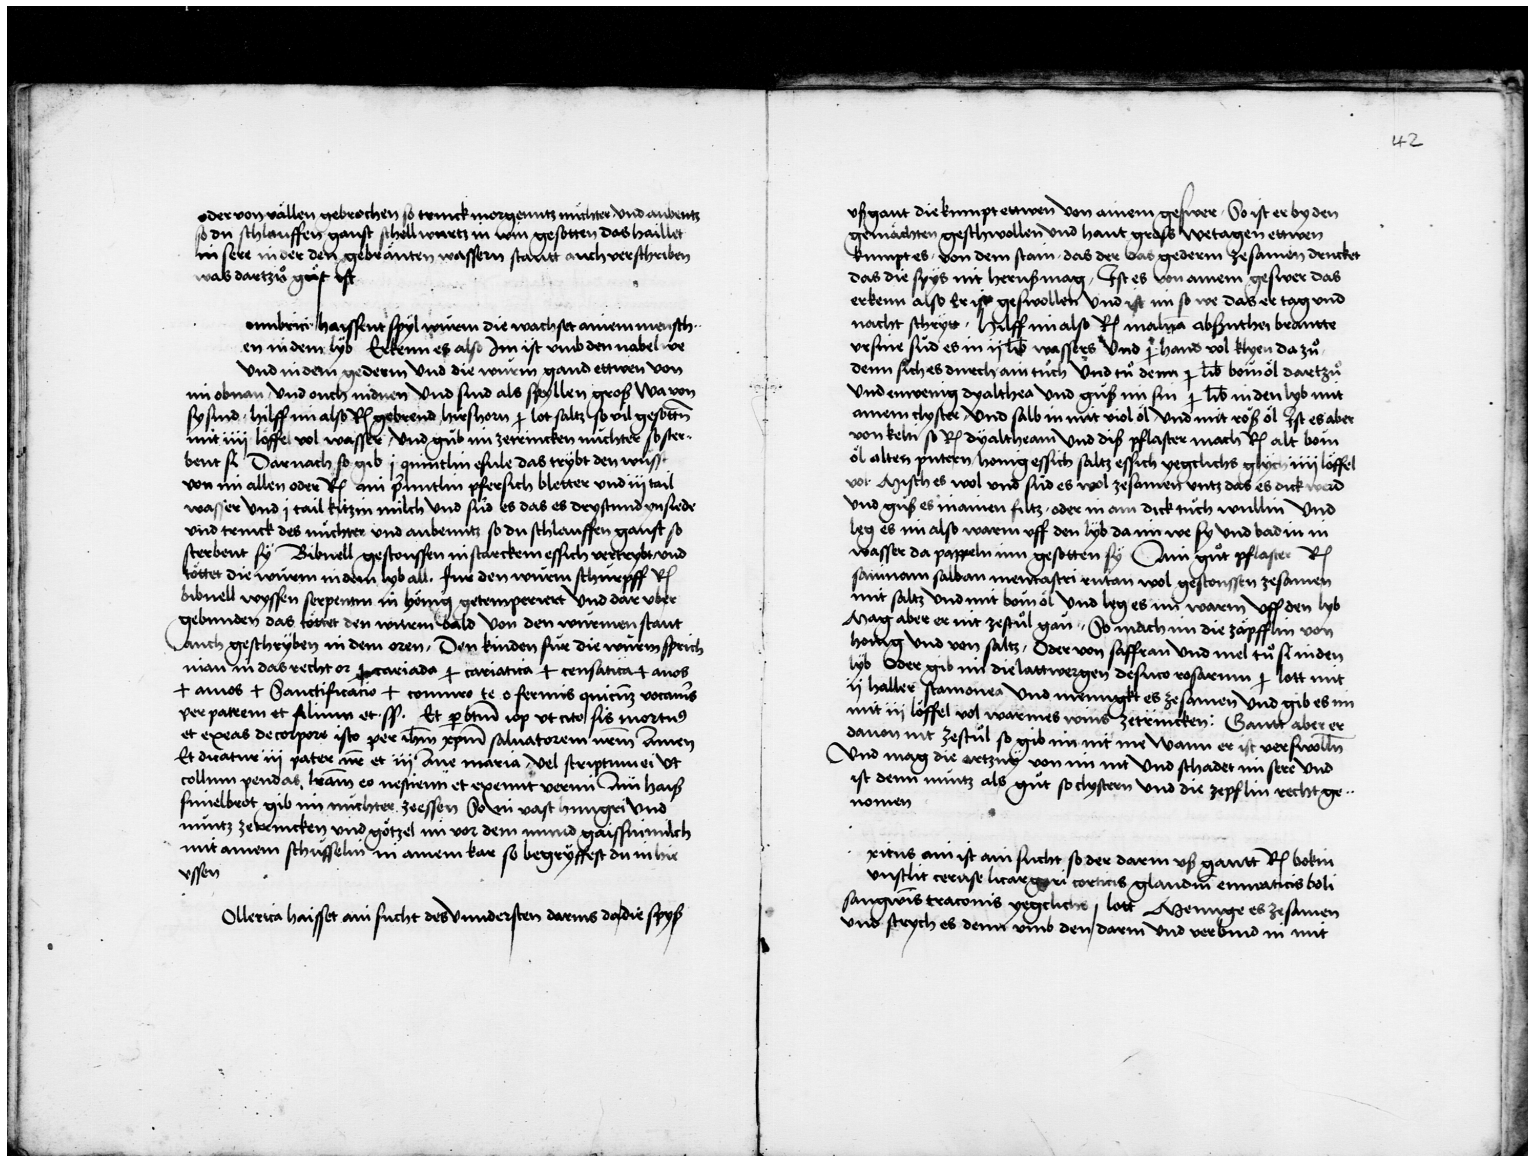 oder von vällen gebrochen so trinck morgenntz nüchter und aubentz
so du schlauffen gaust schellwurtz in win gesotten das haillet
in sere in der den gebranten wassern stautt auch verschriben
was dartzů gůt ist
umbrici haissent spyl würm die wachset ainem mensch..
en in dem lyb Erkenn es also Im ist umb den nabel we
Und in dem gederm Und die würm gand ettwen von
im obnan und ouch indnen Und sind als spyllen groß Wa von
sy sind hilff im also R/ gebrend hirshorn j lot saltz so vil gesottn
mit iiii löffel vol wasser Und gib im ze trincken nüchter so ster-
bent si Darnach so gib j quintlin esule das trybt den
von im allen oder R/ ain quintlin pfersich bletter und iij tail
wasser Und j tail kitzin milch und süd es das es drystund insiede
und trinck des nüchter und aubentz so du schlauffen gaust so
sterbent sy Bibnell gestoussen in starckem essich vertrybt und
töttet die würm in dem lyb all. Für den würm schürpff R/
bibnell wyssen serpentin in honig getemperiert Und dar über
gebunden das töttet den würm bald Von den würmen staut
auch geschryben in dem oren. Den kinden für die würm sprich
man in das recht or + cariada + cariatica + censatica + auos
+ amos + Sanctificacio + coniuro te o fermis quicumz vocaris
per patrem et filium et ss. Et iop ut cito sis mortuus
et exeas de corpore isto per ihm xpm saluatorem nrm Amen
Et dicatur iii pater nr et iii Aue maria vel scriptum ei ut
collum pendas, eo nesciente et exeunt verm Ain haiß
simelbrot gib im nüchter ze essen So im vast hungri Und
nüntz ze trincken und götzel im vor dem mund gaissinmilch
mit ainem schüsselin in ainem kar so begryffest du in hie
ussen
Ollerica haisset ain sucht des Understen darms da die spyß
42
ußgaut die kumpt ettwen von ainem geswer. So ist er by den
gemächten geschwollen und haut groß wetagen ettwen
kumpt es von dem stain das der das gederm zesamen drucket
das die spys nit heruß mag. Ist es von ainem geswer das
erkenn also Er ist geswollen Und ist im so we das er tag und
nacht schryt. Hilff im also R/ malua absinthei brantte
ursine süd es in ij lib wassers Und j hand vol klyen da zů
denn sich es durch ain tůch Und tů denn j lib bomöl dartzů
Und ein wenig dyalthea Und güß im sin j lib in den lyb mit
ainem clyster Und salb in mit viol öl Und mit roß öl Ist es aber
von kelti so R/ dyaltheam Und diß pflaster mach R/ alt bom
öl alten putern honig essich saltz essich yegclichs glych iiii löffel
vol Misch es wol und süd es wol zesamen untz das es dick werd
und güß es in ainen filtz oder in ain dick tůch wullin Und
leg es im also warm uff den lyb da im we sy Und bad in in
wasser da pappeln inn gesotten sy Ain gůt pflaster R/
sauinam salban mentastri rutan wol gestoussen zesamen
mit saltz Und mit bomöl Und leg es im warm uff den lyb
Mag aber er nit ze stůl gan. So mach im die zäpfflin von
honig Und von saltz. Oder von saffran Und mel tů si in den
lyb Oder gib im die lattwergen de suco rosarum j lott mit
ij haller scamonea Und mengkt es zesamen Und gib es im
mit iij löffel vol warmes wins ze trincken: Gautt aber er
dauon nit ze stůl so gib im nit me Wann er ist verswolln
Und mag die ertzny von im nit Und schadet im sere Und
ist denn nüntz als gůt so clystern Und die zepflin recht ge..
nomen
xitus ani ist ain sucht so der darm uß gautt R/ bokin
unslit ceruse litargiri corticis glandin boli
sangwis traconis yegclichs j lott Menge es zesamen
und strych es denn umb den darm Und verbind in mit